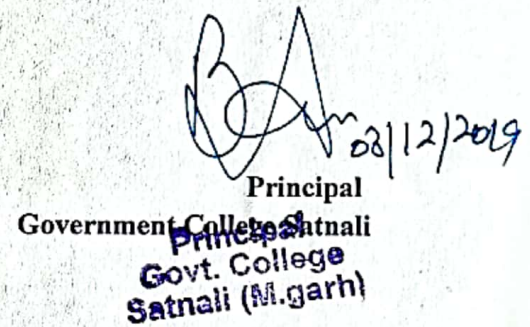 03/12/2019
Principal
Government College Satnali
Principal
Govt. College
Satnali (M.garh)